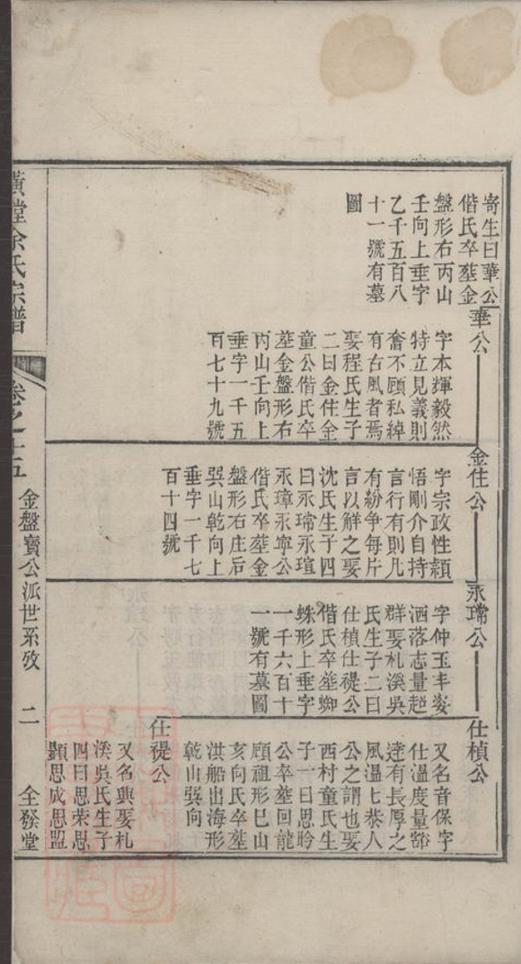 寄生曰華公
偕氏卒塟金
盤形右丙山
壬向上垂字
乙千五百八
十一號有墓
圖
華公
字本輝毅然
特立見義則
奮不顧私綽
有右風者焉
娶程氏生子
二曰金住金
童公偕氏卒
塟金盤形右
丙山壬向上
垂字一千五
百七十九號
金住公
字宗政性穎
悟剛介自持
言行有則凡
有紛爭每片
言以解之娶
沈氏生子四
曰永瑺永瑄
永璋永寧公
偕氏卒塟金
盤形右庄后
巽山乾向上
垂字一千七
百十四號
永瑺公
字仲玉丰姿
洒落志量超
群娶札溪吳
氏生子二曰
仕楨仕禔公
偕氏卒塟蜘
蛛形上垂字
一千六百十
一號有墓圖
仕楨公
又名音保字
仕溫度量豁
達有長厚之
風溫七恭人
公之謂也娶
西村童氏生
子一曰思昤
公卒塟回龍
顧祖形巳山
亥向氏卒塟
洪船出海形
乾山巽向
仕禔公
又名興娶札
溪吳氏生子
四曰思荣思
顥思成思盟
黃堂余氏宗譜
卷之十五
金盤寶公派世系攷
二
全發堂